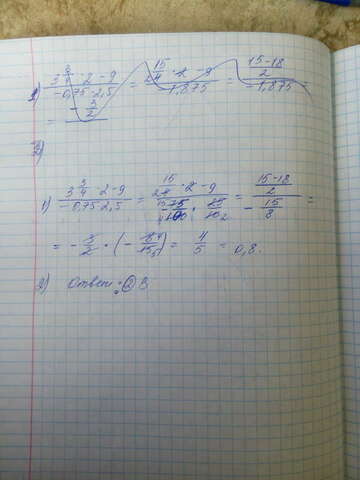 3 3/4 · 2 - 9 / -0,75 · 2,5 = 15/4 · 2 - 9 / -1,875 = 15-18/2 / -1,875
= -3/2
2)
1) 3 3/4 · 2 - 9 / -0,75 · 2,5 = 15/2 - 9 / 75/100 · 25/10 = 15-18/2 / -15/8 =
= -3/2 · (-8/15) = 4/5 = 0,8.
2) Ответ: 2) В